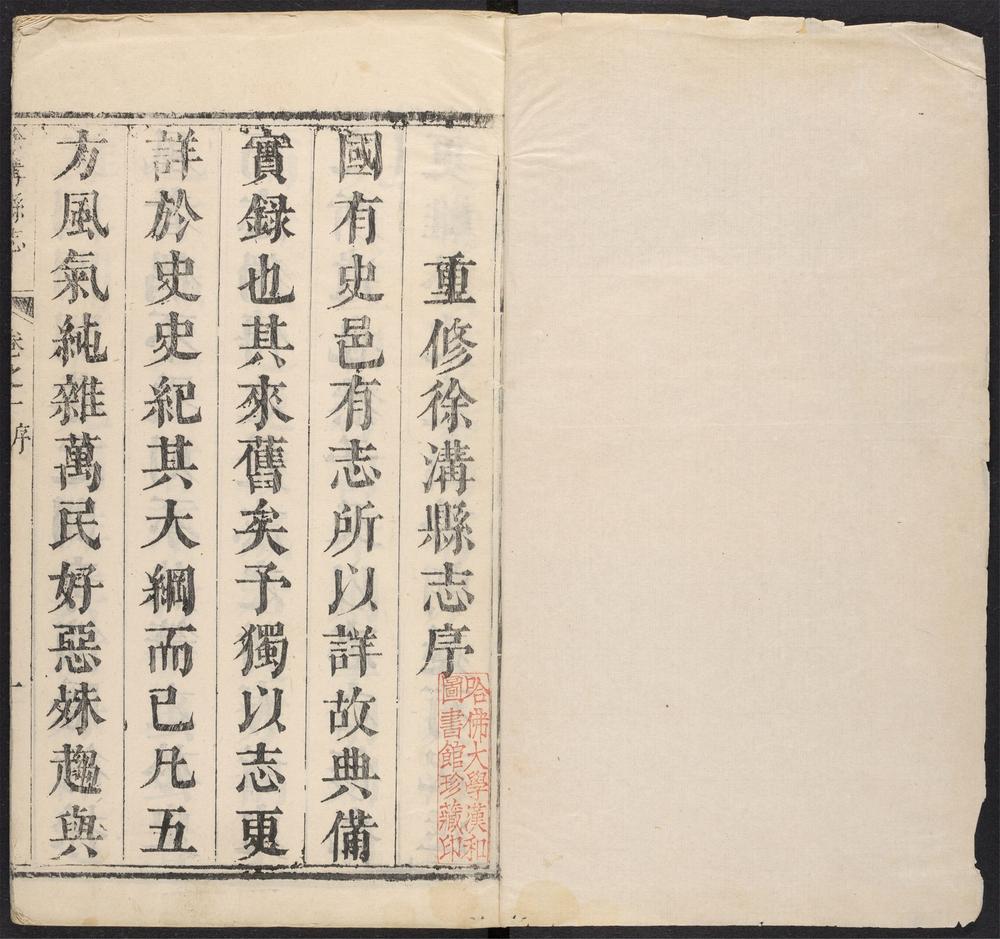 重修徐溝縣志序
國有史邑有志所以詳故典備
實録也其來舊矣予獨以志更
詳於史史紀其大綱而已凡五
方風氣純雜萬民好惡殊趨與
溝縣志 卷之一 序 一
哈佛大學漢和
圖書館珍藏印